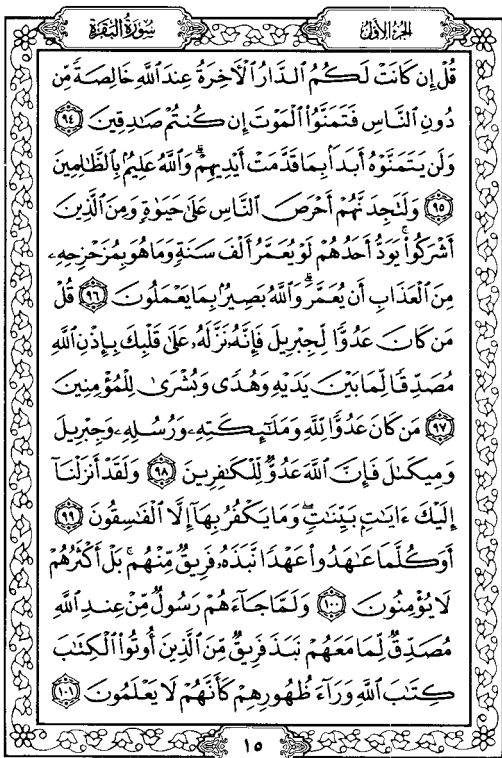 الجزء الأول
سورة البقرة
قُلْ إِن كَانَتْ لَكُمُ الدَّارُ الْآخِرَةُ عِندَ اللَّهِ خَالِصَةً مِّن
دُونِ النَّاسِ فَتَمَنَّوُا الْمَوْتَ إِن كُنتُمْ صَادِقِينَ ٩٤
وَلَن يَتَمَنَّوْهُ أَبَدًا بِمَا قَدَّمَتْ أَيْدِيهِمْ ۗ وَاللَّهُ عَلِيمٌ بِالظَّالِمِينَ
٩٥ وَلَتَجِدَنَّهُمْ أَحْرَصَ النَّاسِ عَلَىٰ حَيَوٰةٍ وَمِنَ الَّذِينَ
أَشْرَكُوا ۚ يَوَدُّ أَحَدُهُمْ لَوْ يُعَمَّرُ أَلْفَ سَنَةٍ وَمَا هُوَ بِمُزَحْزِحِهِۦ
مِنَ الْعَذَابِ أَن يُعَمَّرَ ۗ وَاللَّهُ بَصِيرٌ بِمَا يَعْمَلُونَ ٩٦ قُلْ
مَن كَانَ عَدُوًّا لِّجِبْرِيلَ فَإِنَّهُۥ نَزَّلَهُۥ عَلَىٰ قَلْبِكَ بِإِذْنِ اللَّهِ
مُصَدِّقًا لِّمَا بَيْنَ يَدَيْهِ وَهُدًى وَبُشْرَىٰ لِلْمُؤْمِنِينَ
٩٧ مَن كَانَ عَدُوًّا لِّلَّهِ وَمَلَٰٓئِكَتِهِۦ وَرُسُلِهِۦ وَجِبْرِيلَ
وَمِيكَىٰلَ فَإِنَّ اللَّهَ عَدُوٌّ لِّلْكَٰفِرِينَ ٩٨ وَلَقَدْ أَنزَلْنَآ
إِلَيْكَ ءَايَٰتٍۭ بَيِّنَٰتٍ ۖ وَمَا يَكْفُرُ بِهَآ إِلَّا الْفَٰسِقُونَ ٩٩
أَوَكُلَّمَا عَٰهَدُوا عَهْدًا نَّبَذَهُۥ فَرِيقٌ مِّنْهُم ۚ بَلْ أَكْثَرُهُمْ
لَا يُؤْمِنُونَ ١٠٠ وَلَمَّا جَآءَهُمْ رَسُولٌ مِّنْ عِندِ اللَّهِ
مُصَدِّقٌ لِّمَا مَعَهُمْ نَبَذَ فَرِيقٌ مِّنَ الَّذِينَ أُوتُوا الْكِتَٰبَ
كِتَٰبَ اللَّهِ وَرَآءَ ظُهُورِهِمْ كَأَنَّهُمْ لَا يَعْلَمُونَ ١٠١
١٥